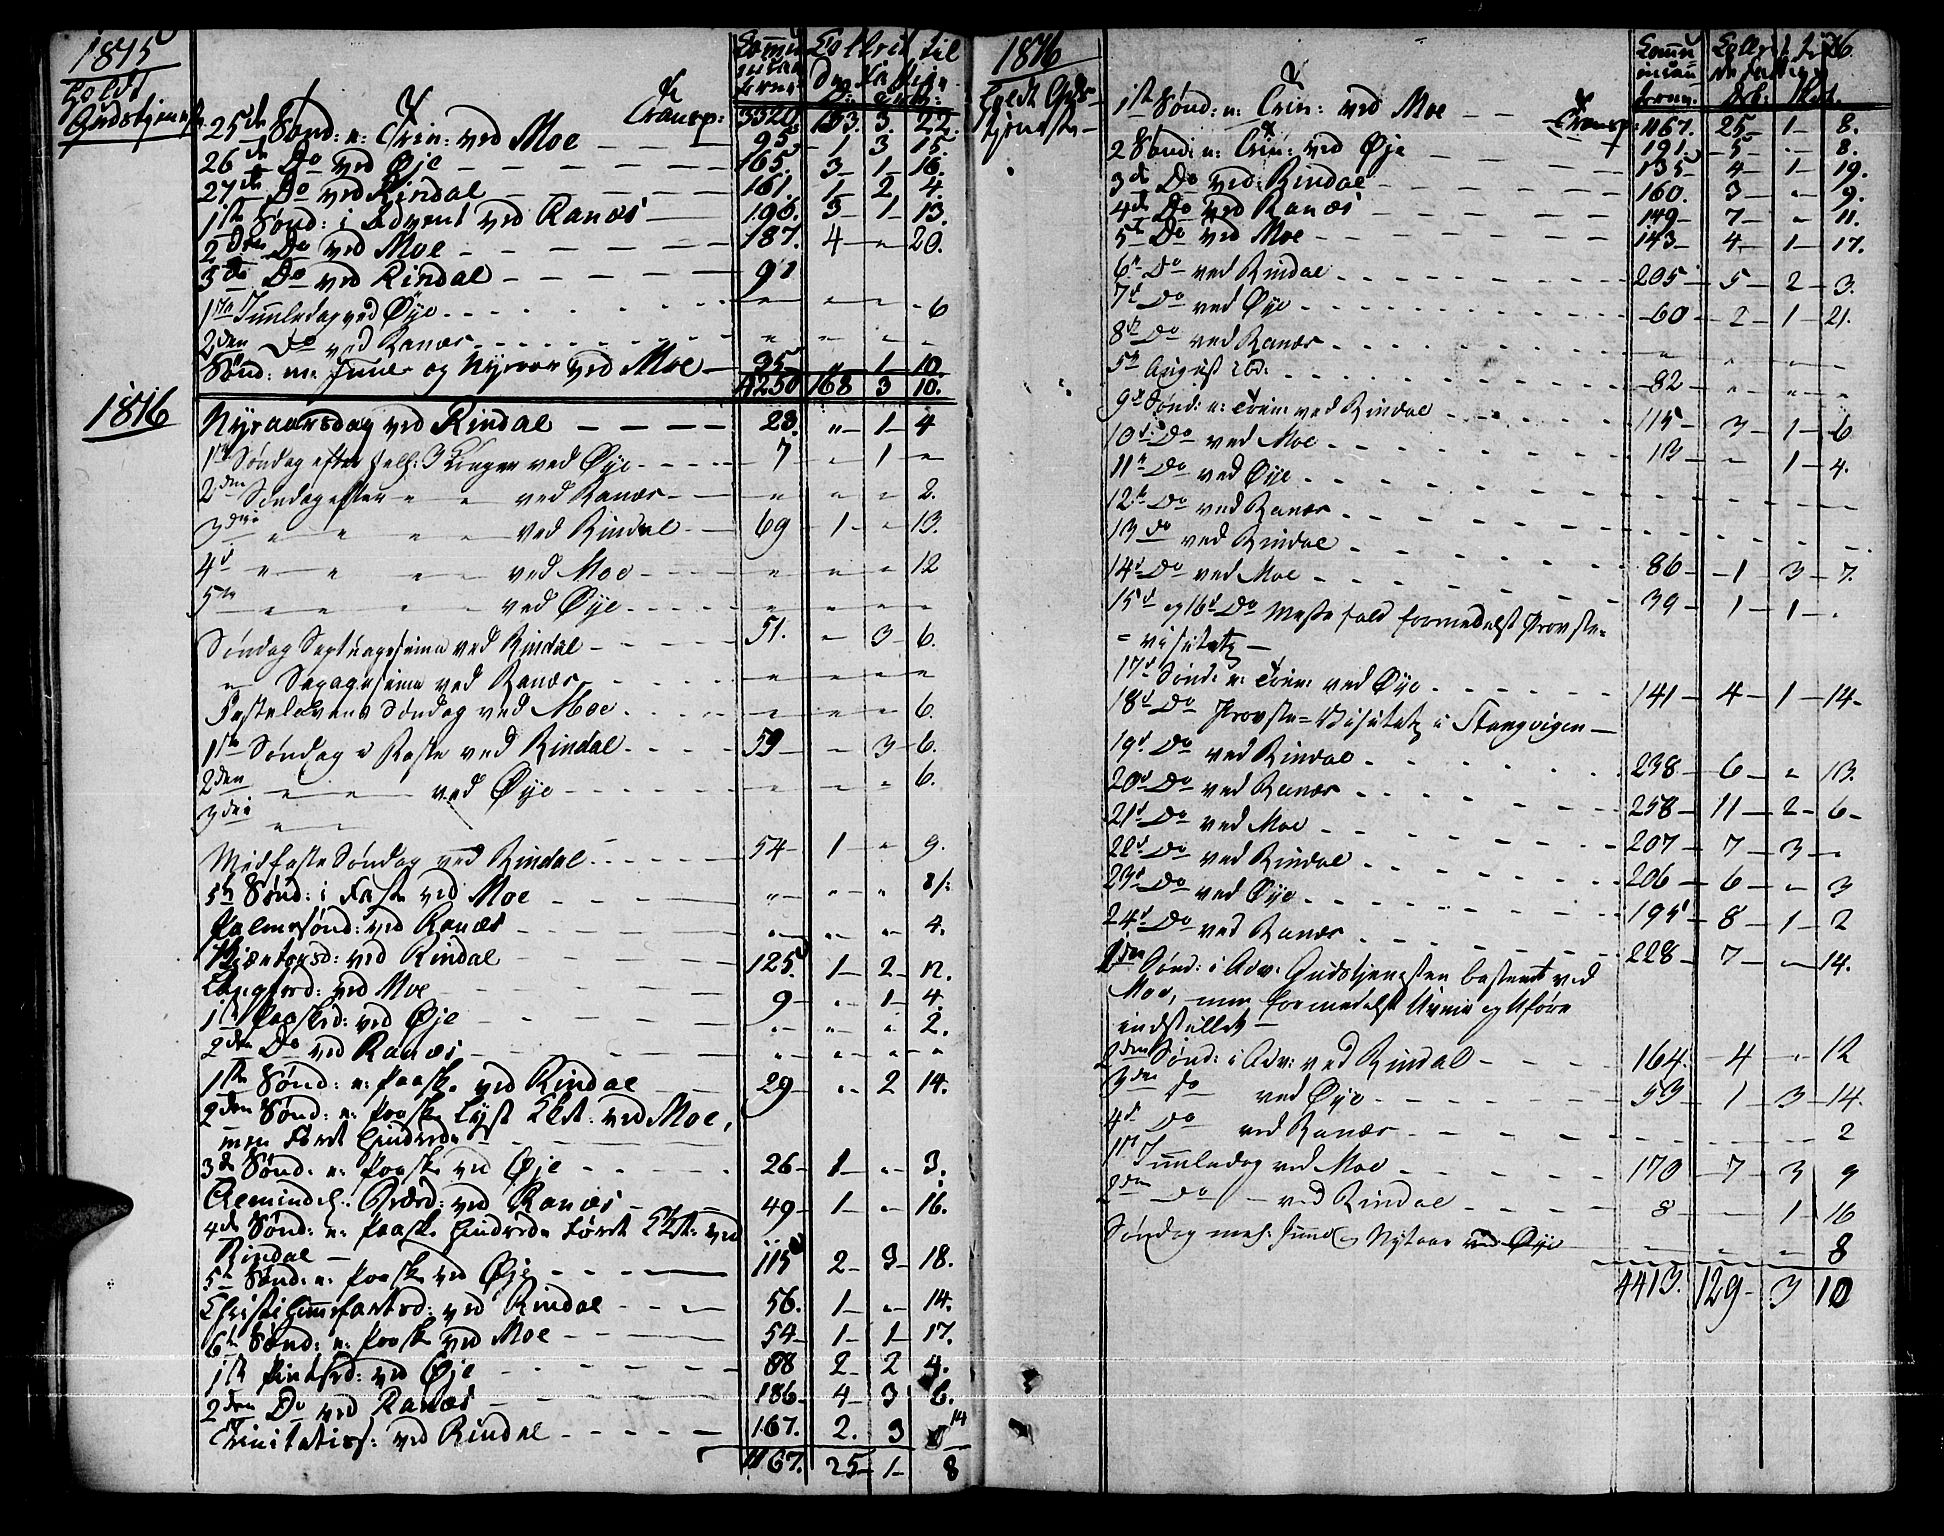 1815
Holdt
Gudstjeneste
Communicanternes
Collect til
De fattige
Transp: 3520. 153. 3. 22.
25de Sønd: e: Trin: ved Moe 95. 1 3 15.
26de Do ved Øje 165. 3 1 16.
27de Do ved Rindal 161. 1 2 4.
1ste Sønd: i Advent ved Ranæs 196. 3 1 13.
2den Do ved Moe 187. 4 " 20.
3die Do ved Rindal 91
1ste Juuledag ved Øye 6
2den Do ved Ranæs
Sønd: m: Juul og Nyaar ved Moe 35 " 1 10.
4250 168 3 10.
1816
Nyaarsdag ved Rindal 23. " 1 4
1ste Søndag efter hell: 3 Konger ved Øye 7 " 1 "
2den Søndag efter " " ved Ranæs " " " 2.
3die " " " " ved Rindal 69 1 " 13.
4de " " " " ved Moe " " " 12
5te " " " " ved Øye " " " "
Søndag Septuagesima ved Rindal 51. " 3 6.
" Sexagesima ved Ranæs " " " "
Fastelavens Søndag ved Moe " " " 6.
1ste Søndag i Faste ved Rindal 59 " 3 6.
2den " " ved Øye " " " 6.
3die " "
Midfaste Søndag ved Rindal 54 1 " 9.
5te Sønd: i Faste ved Moe " " " 8
Palmesønd: ved Ranæs " " " 4.
Skiærtorsd: ved Rindal 125. 1 2 12.
Langfred: ved Moe 9 " 1 4.
1ste Paasked: ved Øje " " " 2.
2den Do ved Ranæs " " " "
1ste Sønd: e: Paaske ved Rindal 29 " 2 14.
2den Sønd: e: Paaske lyst ved Moe,
men
3de Sønd: e: Paaske ved Øje 26 1 " 3.
Almindel: Bededd: ved Ranæs 49 1 " 16.
4de Sønd: e: Paaske ved
Rindal 115 2 3 18.
5te Sønd: e: Paaske ved Øje
Christi Himmelfartsd: ved Rindal 56. 1 " 14.
6te Sønd: e: Paaske ved Moe 54 1 1 17.
1ste Pintsed: ved Øje 88 2 2 4.
2den Do ved Ranæs 186 4 3 6.
Trinitatiss: ved Rindal 167. 2. 3 14
1167. 25 1 8
1816
Holdt Guds-
tjeneste
Communicantrne.
Collect til
de fattige
Rdr: Mrk.
Transp: 1167. 25 1 8.
1ste Sønd: e: Trin: ved Moe 191. 5 " 8.
2 Sønd: e: Trin: ved Øje 135 4 1 19.
3de Do ved Rindal 160. 3 " 9.
4de Do ved Ranæs 149 7 " 11.
5te Do ved Moe 143 4 1 17.
6te Do ved Rindal 205 5 2 3.
7de Do ved Øye 60 2 1 21.
8de Do ved Ranæs " " " "
5te August 82 " " "
9de Sønd: e: Trin: ved Rindal 115 3 1 6
10de Do ved Moe 13 " 1 4.
11te Do ved Øye
12te Do ved Ranæs
13de Do ved Rindal 86 1 3 7.
14de Do ved Moe 39 1 1 "
15de og 16de Do Messefald formedelst Provste=
=visitatz
17de Sønd: e: Trin: ved Øye 141 4 1 14
18de Do Provste=Visitatz i Stangvigen
19de Do ved Rindal 238 6 " 13.
20de Do ved Ranæs 258 11 2 6
21de Do ved Moe 207 7 3 "
22de Do ved Rindal 206 6 " 3
23de Do ved Øye 195 8 1 2
24de Do ved Ranæs 228 7 " 14.
1ste Sønd: i Adv: Gudstjenesten bestemt ved
Moe, men formedelst Uveir og Uføre
indstillet
2den Sønd: i Adv: ved Rindal 164. 4 " 12
3die Do ved Øye 53 1 3 14.
4de Do ved Ranæs 2
1ste Juuledag ved Moe 170 7 3 9
2den Do ved Rindal 8 " 1 16
Søndag mel: Juul og Nytaar ved Øye " " " 8
4413. 129 3 10